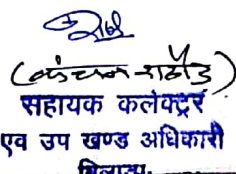 (कंचन राठौड़)
सहायक कलेक्टर
एव उप खण्ड अधिकारी
बिलाड़ा